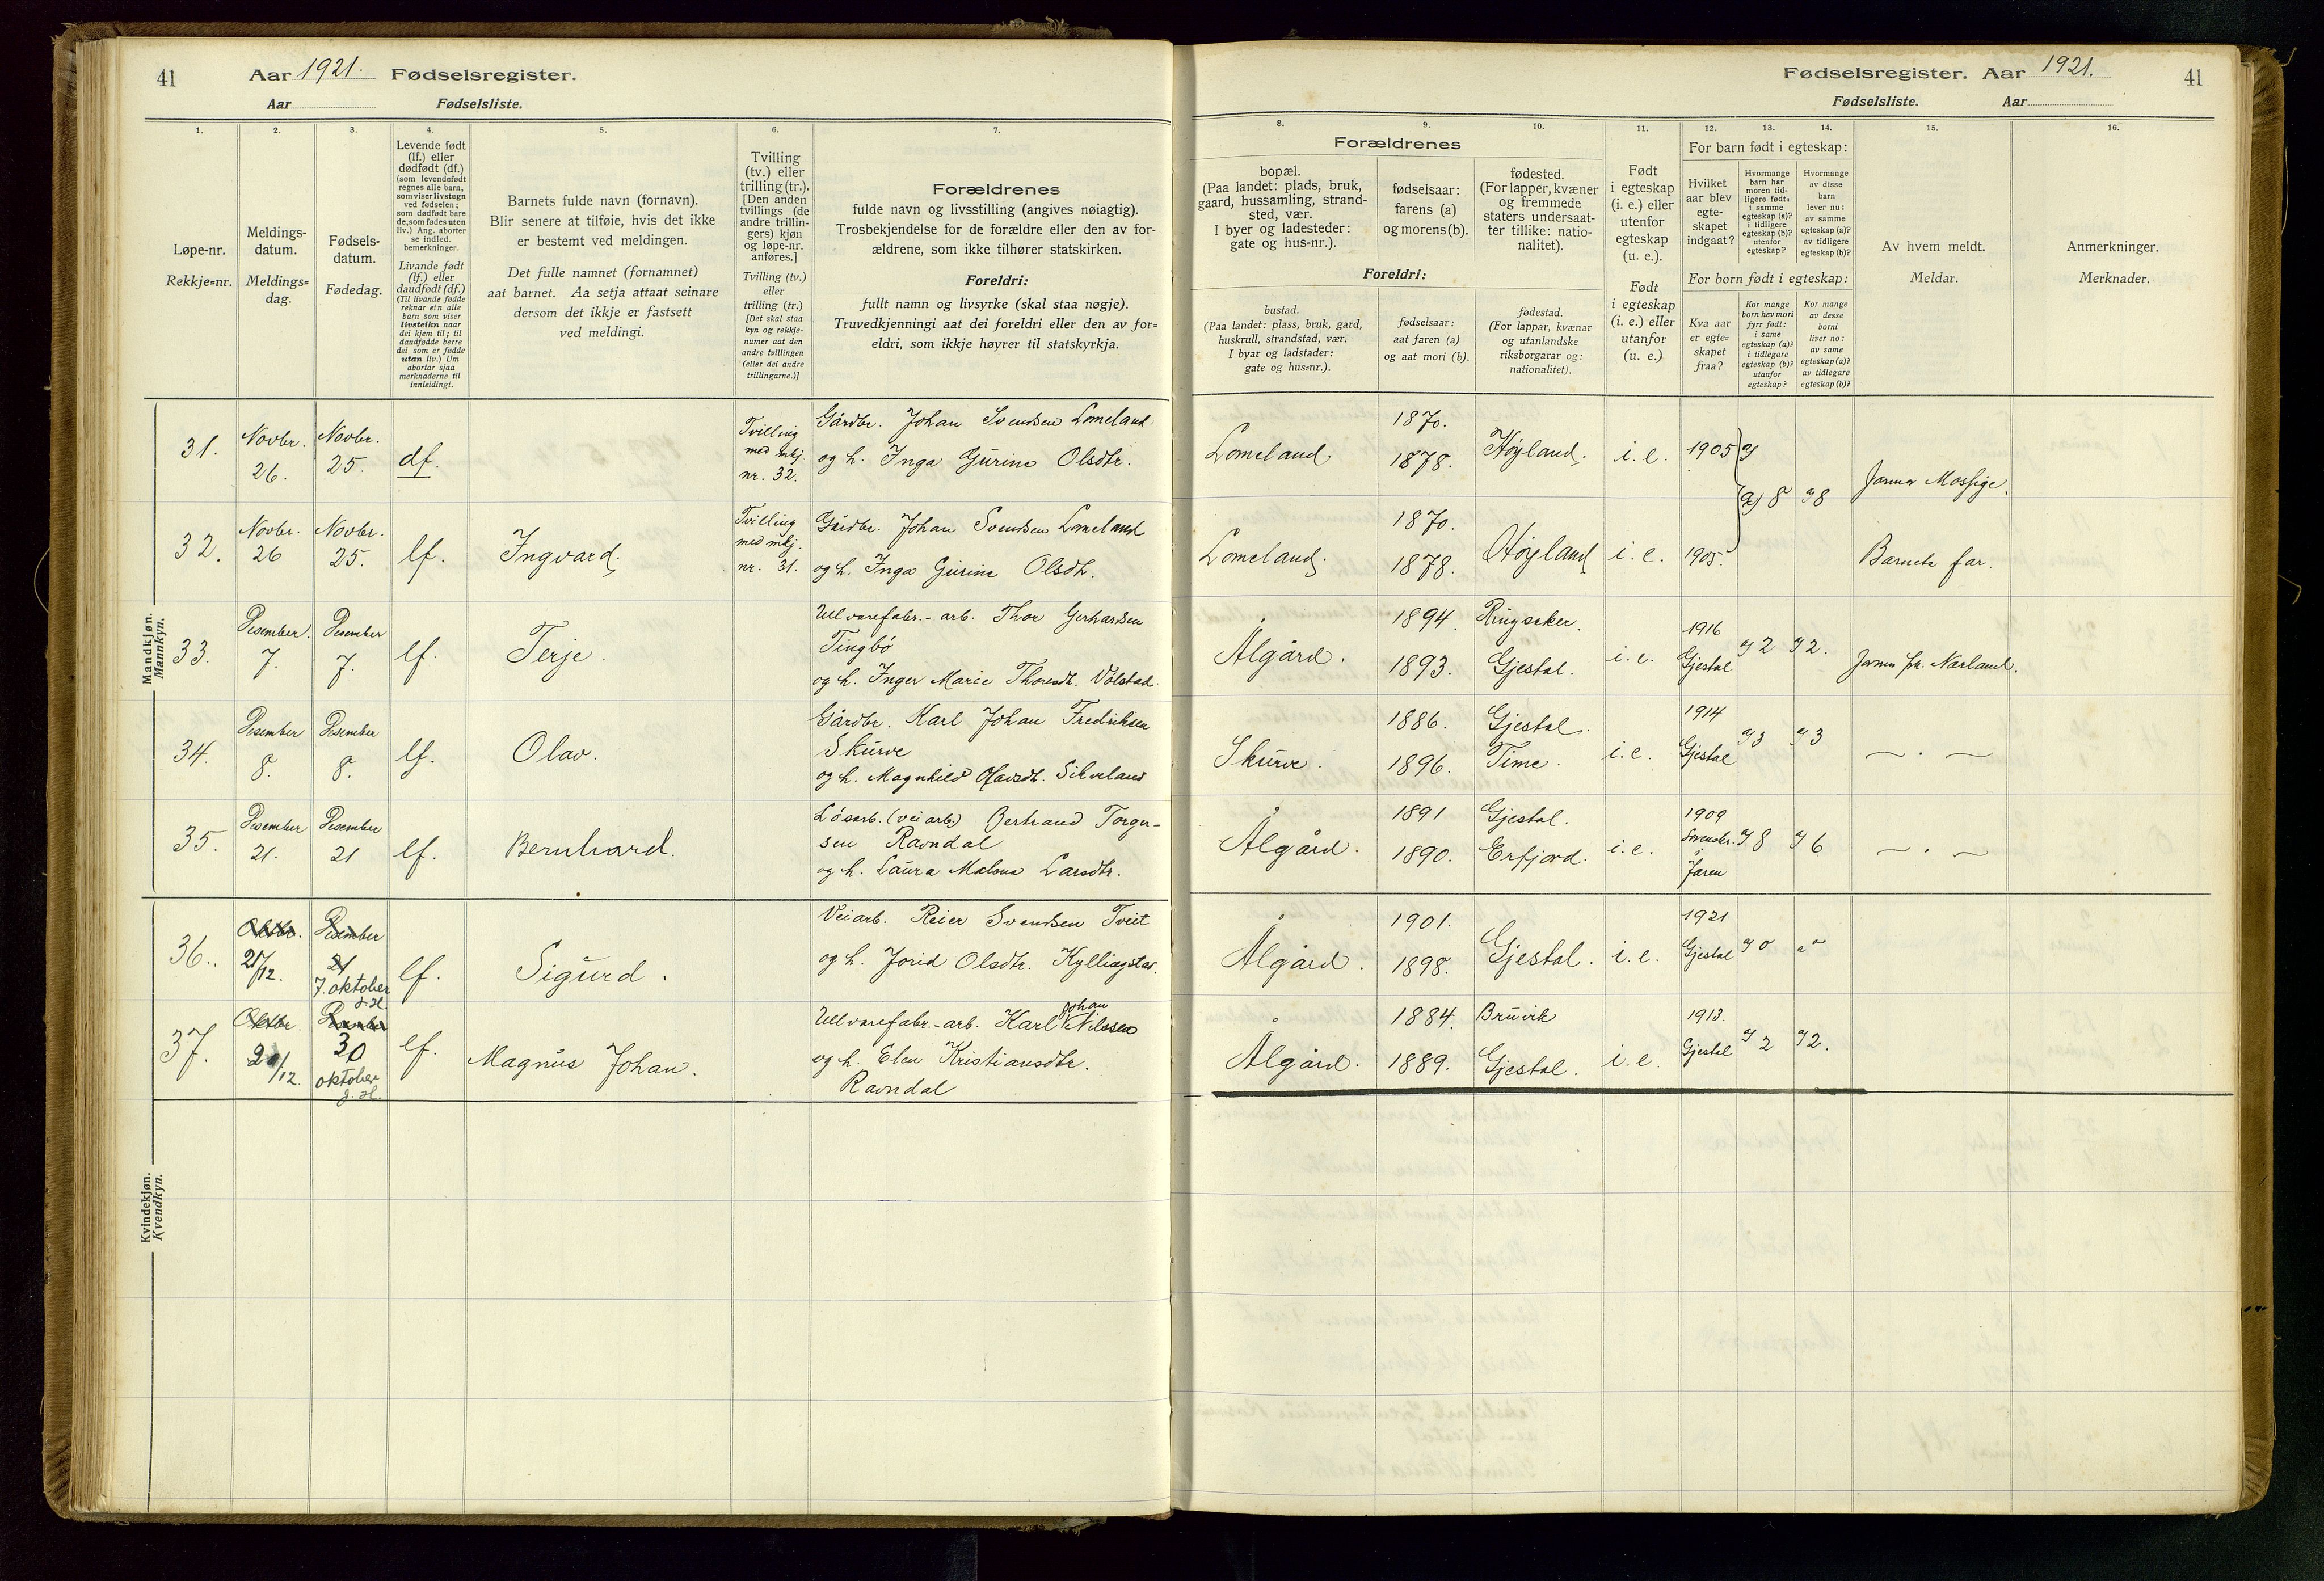 41
Aar 1921. Fødselsregister.
Aar Fødselsliste.
Fødselsregister. Aar 1921.
41
Fødselsliste. Aar
1.
Løpe-nr.
Rekkje=nr.
2.
Meldings-
datum.
Meldings=
dag.
3.
Fødsels-
datum.
Fødedag.
4.
Levende født
(lf.) eller
dødfødt (df.)
(som levendefødt
regnes alle barn,
som viser livstegn
ved fødselen;
som dødfødt bare
de, som fødes uten
liv.) Ang. aborter
se indled.
bemerkninger.
Livande født
(lf.) eller
daudfødt (df.)
(Til livande fødde
reknar ein alle
born som viser
livsteikn naar
dei kjem til; til
daudfødde berre
dei som er fødde
utan liv.) Um
abortar sjaa
merknaderne til
innleidingi.
5.
Barnets fulde navn (fornavn).
Blir senere at tilføie, hvis det ikke
er bestemt ved meldingen.
Det fulle namnet (fornamnet)
aat barnet. Aa setja attaat seinare
dersom det ikkje er fastsett
ved meldingi.
6.
Tvilling
(tv.) eller
trilling (tr.).
[Den anden
tvillings (de
andre trillin-
gers) kjøn
og løpe-nr.
anføres.]
Tvilling (tv.)
eller
trilling (tr.)
[Det skal staa
kyn og rekkje-
numer aat den
andre tvillingen
(eller dei andre
trillingarne.)]
7.
Forældrenes
fulde navn og livsstilling (angives nøiagtig).
Trosbekjendelse for de forældre eller den av for-
ældrene, som ikke tilhører statskirken.
Foreldri:
fullt namn og livsyrke (skal staa nøgje).
Truvedkjenningi aat dei foreldri eller den av for=
eldri, som ikkje høyrer til statskyrkja.
8.
Forældrenes
bopæl.
(Paa landet: plads, bruk,
gaard, hussamling, strand-
sted, vær.
I byer og ladesteder:
gate og hus-nr.).
Foreldri:
bustad.
(Paa landet: plass, bruk, gard,
huskrull, strandstad, vær.
I byar og ladstader:
gate og hus=nr.).
9.
fødselsaar:
farens (a)
og morens (b).
fødselsaar:
aat faren (a)
og aat mori (b).
10.
fødested.
(For lapper, kvæner
og fremmede
staters undersaat-
ter tillike: natio-
nalitet).
fødestad.
(For lappar, kvænar
og utanlandske
riksborgarar og:
nationalitet).
11.
Født
i egteskap
(i. e.) eller
utenfor
egteskap
(u. e.).
Født
i egteskap
(i. e.) eller
utanfor
(u. e.)
12.
For barn født i egteskap:
Hvilket
aar blev
egte-
skapet
indgaat?
For born født i egteskap:
Kva aar
er egte=
skapet
fraa?
13.
Hvormange
barn har
moren tid-
ligere født:
i samme
egteskap (a)?
i tidligere
egteskap (b)?
utenfor
egteskap?
Kor mange
born hev mori
fyrr født:
i same
egteskap (a)?
i tidlegare
egteskap (b)?
utanfor
egteskap?
14.
Hvormange
av disse
barn
lever nu:
av samme
egteskap (a)?
av tidligere
egteskap (b)?
Kor mange
av desse
borni
liver no:
av same
egteskap (a)?
av tidlegare
egteskap (b)?
15.
Av hvem meldt.
Meldar.
16.
Anmerkninger.
Merknader.
Mandkjøn.
Mannkyn.
31. Novbr. 26. Novbr. 25. df. Tvilling med mkj. nr. 32. Gårdbr. Johan Svendsen Lomeland
og h. Inga Gurine Olsdtr. Lomeland 1870. 1878. Høyland. i. e. 1905 a) 8 a) 8 Jormor Mossige.
32. Novbr. 26 Novbr. 25. lf. Ingvard. Tvilling med mkj. nr. 31. Gårdbr. Johan Svendsen Lomeland
og h. Inga Gurine Olsdtr. Lomeland. 1870. 1878. Høyland i. e. 1905. Barnets far.
33. Desember. 7. Desember 7. lf. Terje. Ullvarefabr.-arb. Thor Gerhardsen
Tingbø
og h. Inger Marie Thoresdt. Vølstad. Ålgård. 1894. 1893. Ringsaker. Gjestal. i. e. 1916 Gjestal a) 2 a) 2. Jormor fr. Nærland.
34. Desember 8. Desember 8. lf. Olav. Gårdbr. Karl Johan Fredriksen
Skurve
og h. Magnhild Olavsdt. Sikveland Skurve. 1886. 1896. Gjestal. Time. i. e. 1914 Gjestal a) 3 a) 3 — . —
35. Desember 21. Desember 21 lf. Bernhard. Løsarb. (veiarb.) Bertrand Torger-
sen Ravndal
og h. Laura Malena Larsdtr. Ålgård. 1891 1890. Gjestal. Erfjord. i. e. 1909 i Jæren a) 8 a) 6 — . —
36. Oktbr. 21/12. Desember 21 7. oktober lf. Sigurd. Veiarb. Reier Svendsen Tveit
og h. Jorid Olsdtr. Kyllingstad. Ålgård. 1901. 1898. Gjestal. i. e. 1921 Gjestal a) 0
37. Oktbr. /12. Desember 30 oktober lf. Magnus Johan. Ullvarefabr.-arb. Karl Johan Nilssen
og h. Elen Kristiansdtr.
Ravndal Ålgård. 1884. 1889. Bruvik Gjestal. i. e. 1913. Gjestal a) 2 a) 2.
Kvindekjøn.
Kvendkyn.